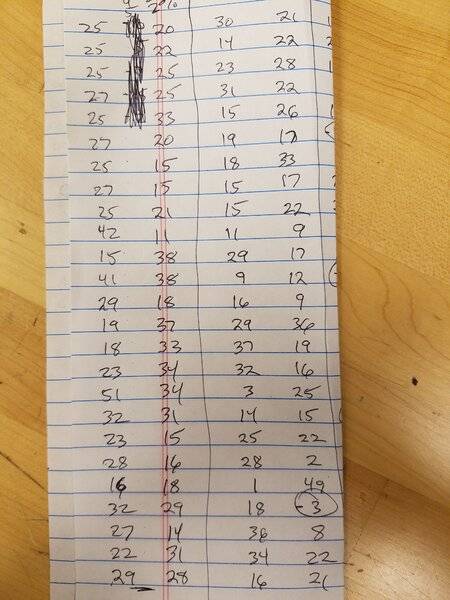 25 20 30 21
25 22 14 22
25 25 23 28
27 25 31 22
25 33 15 26
27 20 19 17
25 15 18 33
27 15 15 17
25 21 15 22
42 11 11 9
15 38 29 17
41 38 9 12
29 18 16 9
19 37 29 36
18 33 37 19
23 34 32 16
51 34 3 25
32 31 14 15
23 15 25 22
28 16 28 2
16 18 1 49
32 29 18 -3
27 14 36 8
22 31 34 22
29 28 16 21